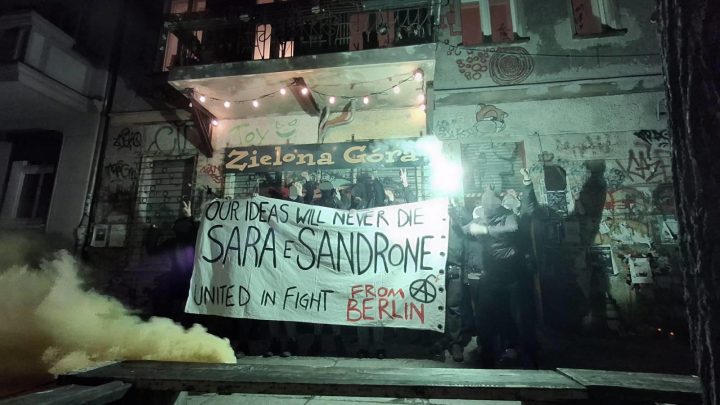 TOY
Zielona Góra
OUR IDEAS WILL NEVER DIE
SARA E SANDRONE
UNITED IN FIGHT FROM
BERLIN